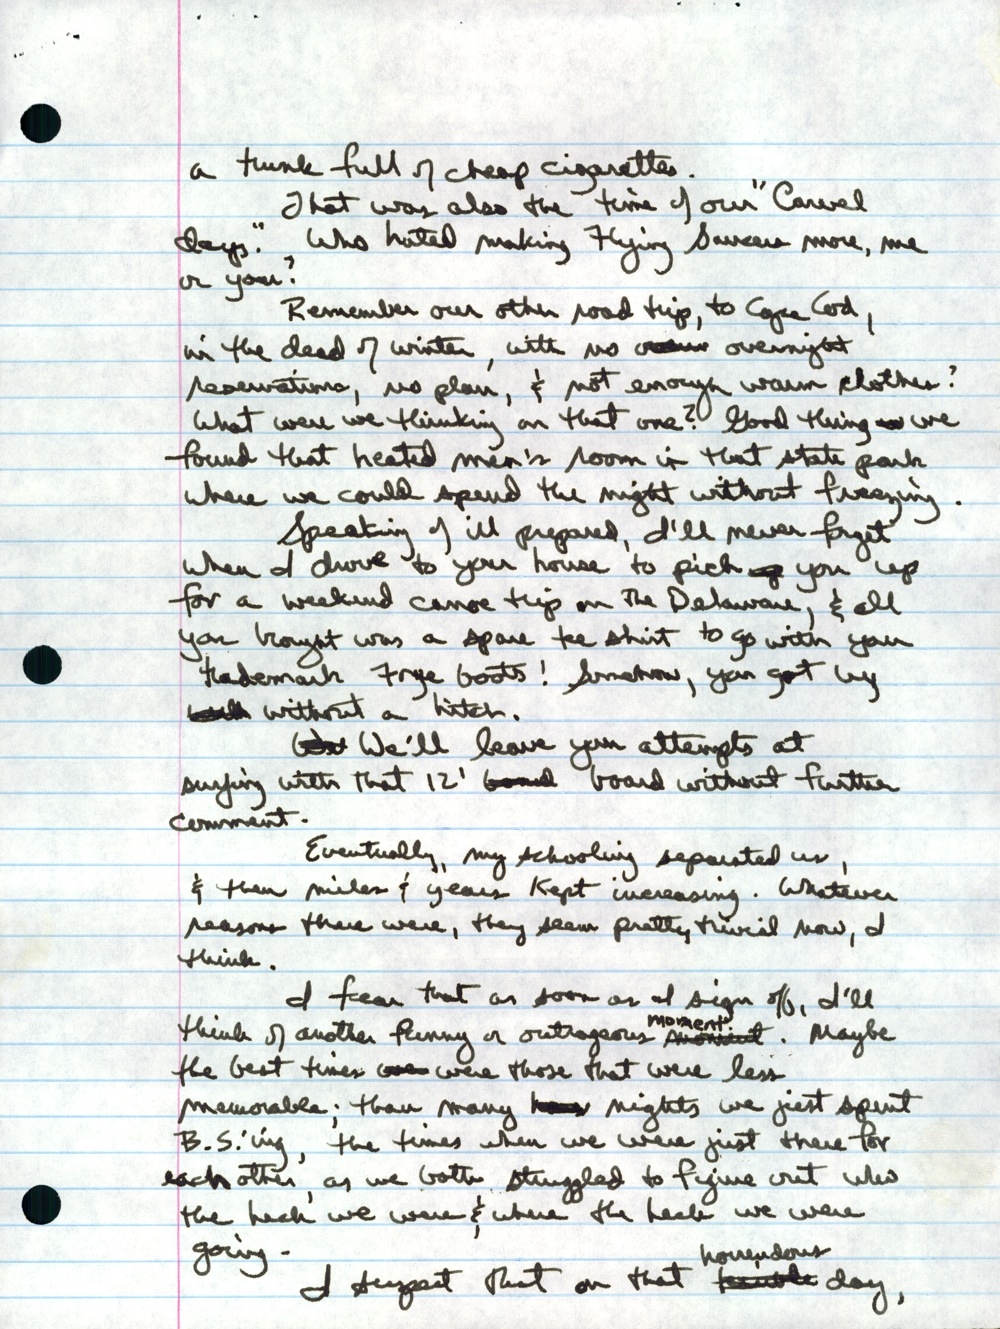 a trunk full of cheap cigarettes.
That was also the time of our "Carvel
days." Who hated making Flying Saucers more, me
or you?
Remember our other road trip, to Cape Cod,
in the dead of winter, with no overnight
reservations, no plan, & not enough warm clothes?
What were we thinking on that one? Good thing we
found that heated men's room in that state park
where we could spend the night without freezing.
Speaking of ill prepared, I'll never forget
when I drove to your house to pick you up
for a weekend canoe trip on the Delaware, & all
you brought was a spare tee shirt to go with your
trademark Frye boots! Somehow, you got by
without a hitch.
We'll leave your attempts at
surfing with that 12' board without further
comment.
Eventually, my schooling separated us,
& then miles & years kept increasing. Whatever
reasons there were, they seem pretty trivial now, I
think.
I fear that as soon as I sign off, I'll
think of another funny or outrageous moment. Maybe
the best times were those that were less
memorable; those many nights we just spent
B.S.'ing, the times when we were just there for
each other, as we both struggled to figure out who
the heck we were & where the heck we were
going.
I suspect that on that horrendous day,